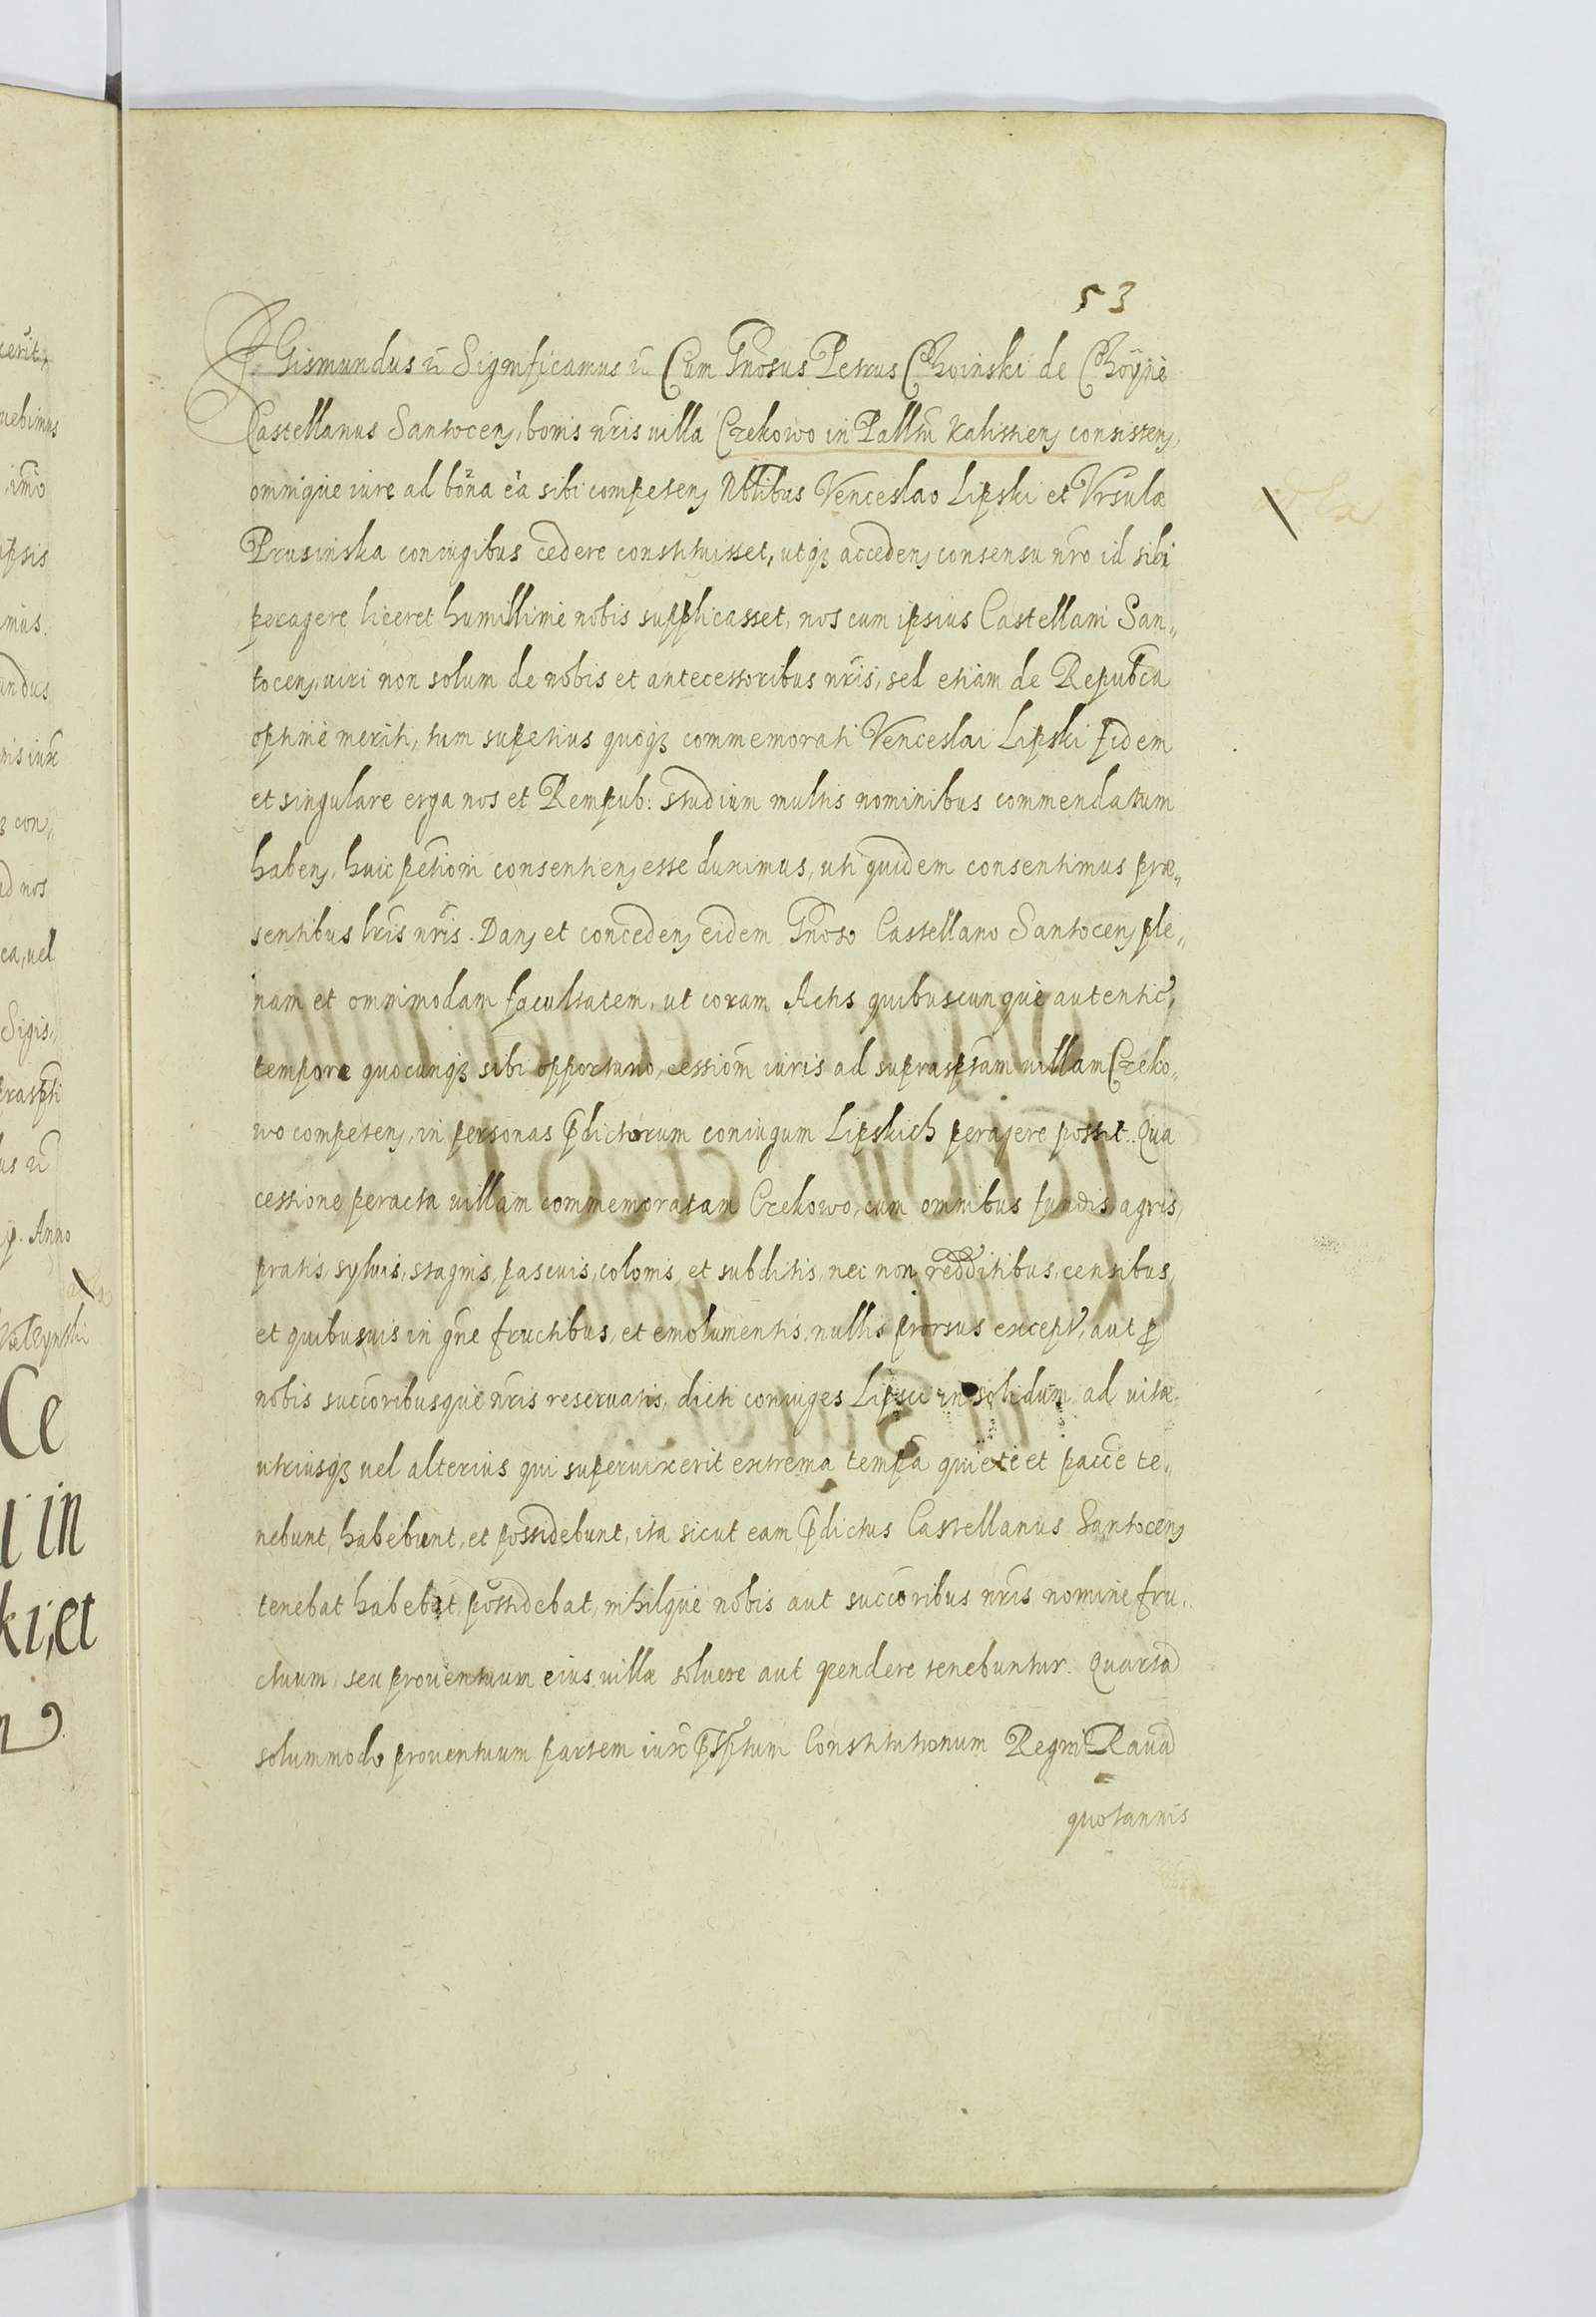 53
Sigismundus etc Significamus etc Cum Gnosus Petrus Choinski de Choyne
Castellanus Santocens, bonis nris villa Czekowo in Palltu Kalissiens consistens,
omnique iure ad bona ea sibi competens Nbtibus Venceslao Lipski et Vrsulæ
Prusinska coniugibus cedere constituisset, utqz accedens consensu nro id sibi
peragere liceret humillime nobis supplicasset, nos cum ipsius Castellani San„
tocens, viri non solum de nobis et antecessoribus nris, sed etiam de Repubca
optime meriti, tum supetius quoqz commemorati Venceslai Lipski fidem
et singulare erga nos et Rempub: studium multis nominibus commendatum
habens, huic petioni consentiens esse duximus, uti quidem consentimus præ„
sentibus lris nris. Dans et concedens eidem Gnoso Castellano Santocens ple„
nam et omnimodam facultatem, ut coram Actis quibuscunque autentic,
tempore quocunqz sibi opportuno, cessiom iuris ad suprasptam villam Czeko„
wo competens, in personas pdictorum coniugum Lipskich peragere possit. Qua
cessione peracta villam commemoratam Czekowo, cum omnibus fundis, agris,
pratis, sylvis, stagnis, pascuis, colonis, et subditis, nec non redditibus, censibus,
et quibusvis in gne fructibus, et emolumentis, nullis prorsus except, aut p
nobis succoribusque nris reservatis, dicti coniuges Lipscii in solidum ad vitæ
utriusqz vel alterius qui supervixerit extrema tempa quiete et pacce te„
nebunt, habebunt, et possidebunt, ita sicut eam pdictus Castellanus Santocens
tenebat habebat, possidebat, nihilque nobis aut succoribus nris nomine fru„
ctuum, seu proventuum eius villæ solvere aut pendere tenebuntur. Quarta
solummodo proventuum partem iux psptum Constitutionum Regni Rava
quotannis